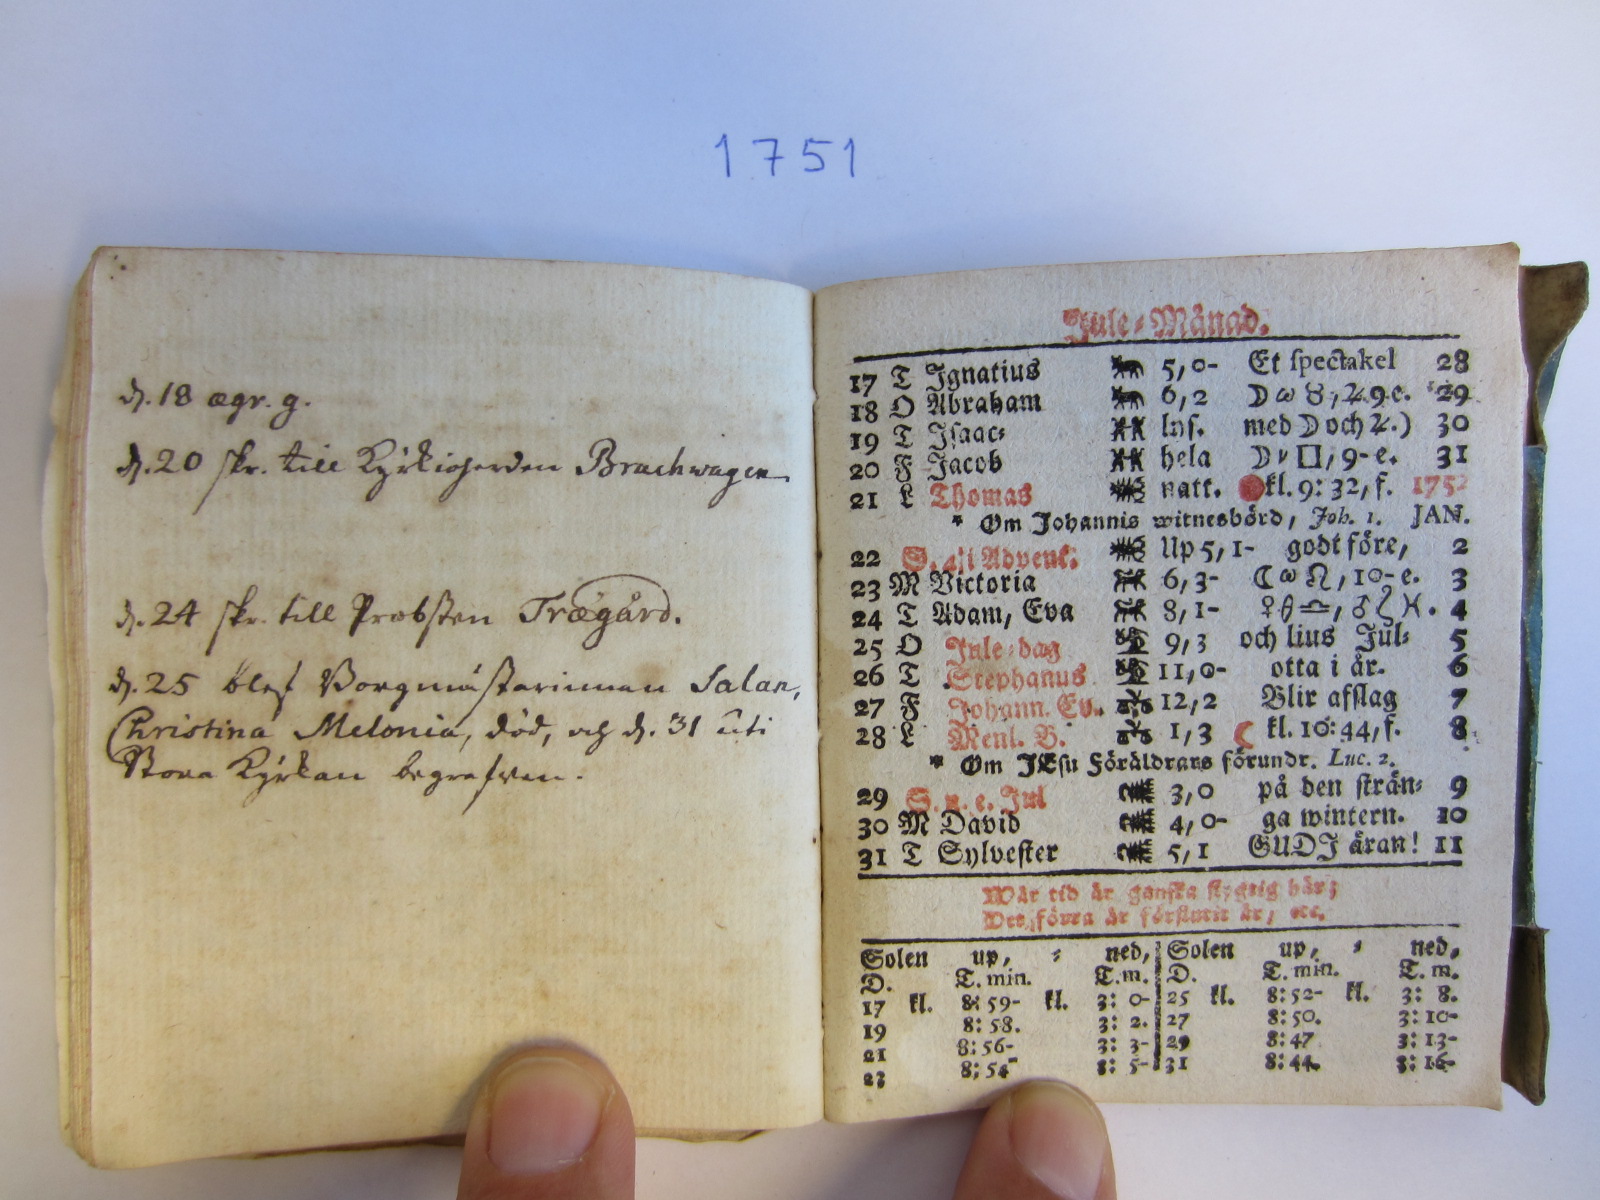 1751
d. 18 ægr. g.
d. 20 skr. till Kyrkioherden Brachwagen
d. 24 skr. till Probsten Trægård.
d. 25 blef Borgmästarinnan Salan,
Christina Melonia, död, och d. 31 uti
Stora Kyrkan begrafven.
Jule-Månad.
17 T Ignatius 5,0- Et spectakel 28
18 O Abraham 6,2 ☽ ω ♉, ♃ 9 e. 29
19 T Isaac- lys. med ☽ och ♃.) 30
20 F Jacob hela ☽ □, 9- e. 31
21 L Thomas natt. kl. 9: 32, f. 1752
* Om Johannis witnesbörd, Joh. 1. JAN.
22 S. 4 i Advent. Up 5, 1- godt före, 2
23 M Victoria 6,3- ☾ ω ♌, 10- e. 3
24 T Adam, Eva 8,1- ♀ ♎, ♂ ♓. 4
25 O Jule-dag 9,3 och lius Jul- 5
26 T Stephanus 11,0- otta i år. 6
27 F Johann. Ev. 12,2 Blir afslag 7
28 L Menl. B. 1,3 ☾ kl. 10: 44, f. 8
* Om JEsu Föräldrars förundr. Luc. 2.
29 S. n. e. Jul 3,0 på den strän- 9
30 M David 4,0- ga wintern. 10
31 T Sylvester 5,1 GUDI äran! 11
Wår tid är ganska flygtig här;
förra är förflutit är, etc.
Solen up, - ned, Solen up, - ned,
D. T. min. T. m. D. T. min. T. m.
17 kl. 8: 59- kl. 3: 0- 25 kl. 8: 52- kl. 3: 8.
19 8: 58. 3: 2. 27 8: 50. 3: 10-
21 8: 56- 3: 3- 29 8: 47 3: 13-
23 8: 54- 3: 5- 31 8: 44. 3: 16-